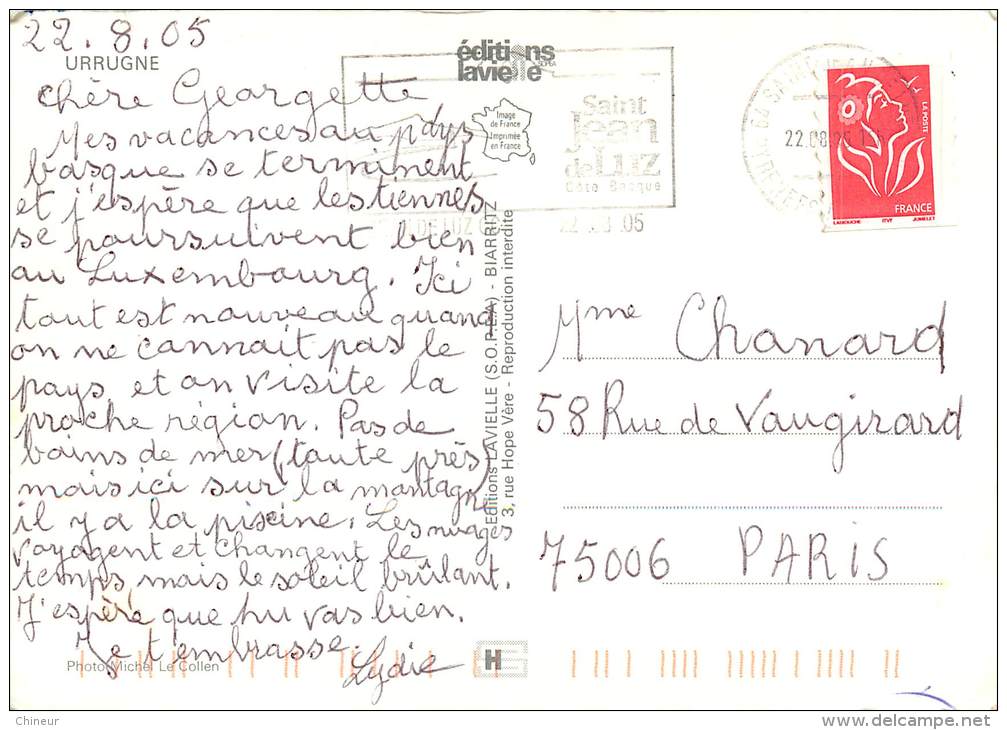 22.8.05
URRUGNE
chère Georgette,
Mes vacances au pays
basque se terminent
et j'espère que les tiennes
se poursuivent bien
au Luxembourg. Ici
tout est nouveau quand
on ne connait pas le
pays et on visite la
proche région. Pas de
bains de mer (toute près)
mais ici sur la montagne
il y a la piscine. Les nuages
voyagent et changent le
temps, mais le soleil brûlant.
J'espère que tu vas bien.
Je t'embrasse.
Lydie
Photo Michel Le Collen
éditions
lavielle
SOPEA
Image
de France
Imprimée
en France
Saint
Jean
de Luz
Côte Basque
DE LUZ
22.8.05
Editions LAVIELLE (S.O.P.E.A) - BIARRITZ
3, rue Hope Vère - Reproduction interdite
64 SAINT JEAN
22.08.05
LA POSTE
FRANCE
LAMOUCHE ITVF JUMELET
Mme Chanard
58 Rue de Vaugirard
75006 PARIS
H
Chineur
delcampe.net